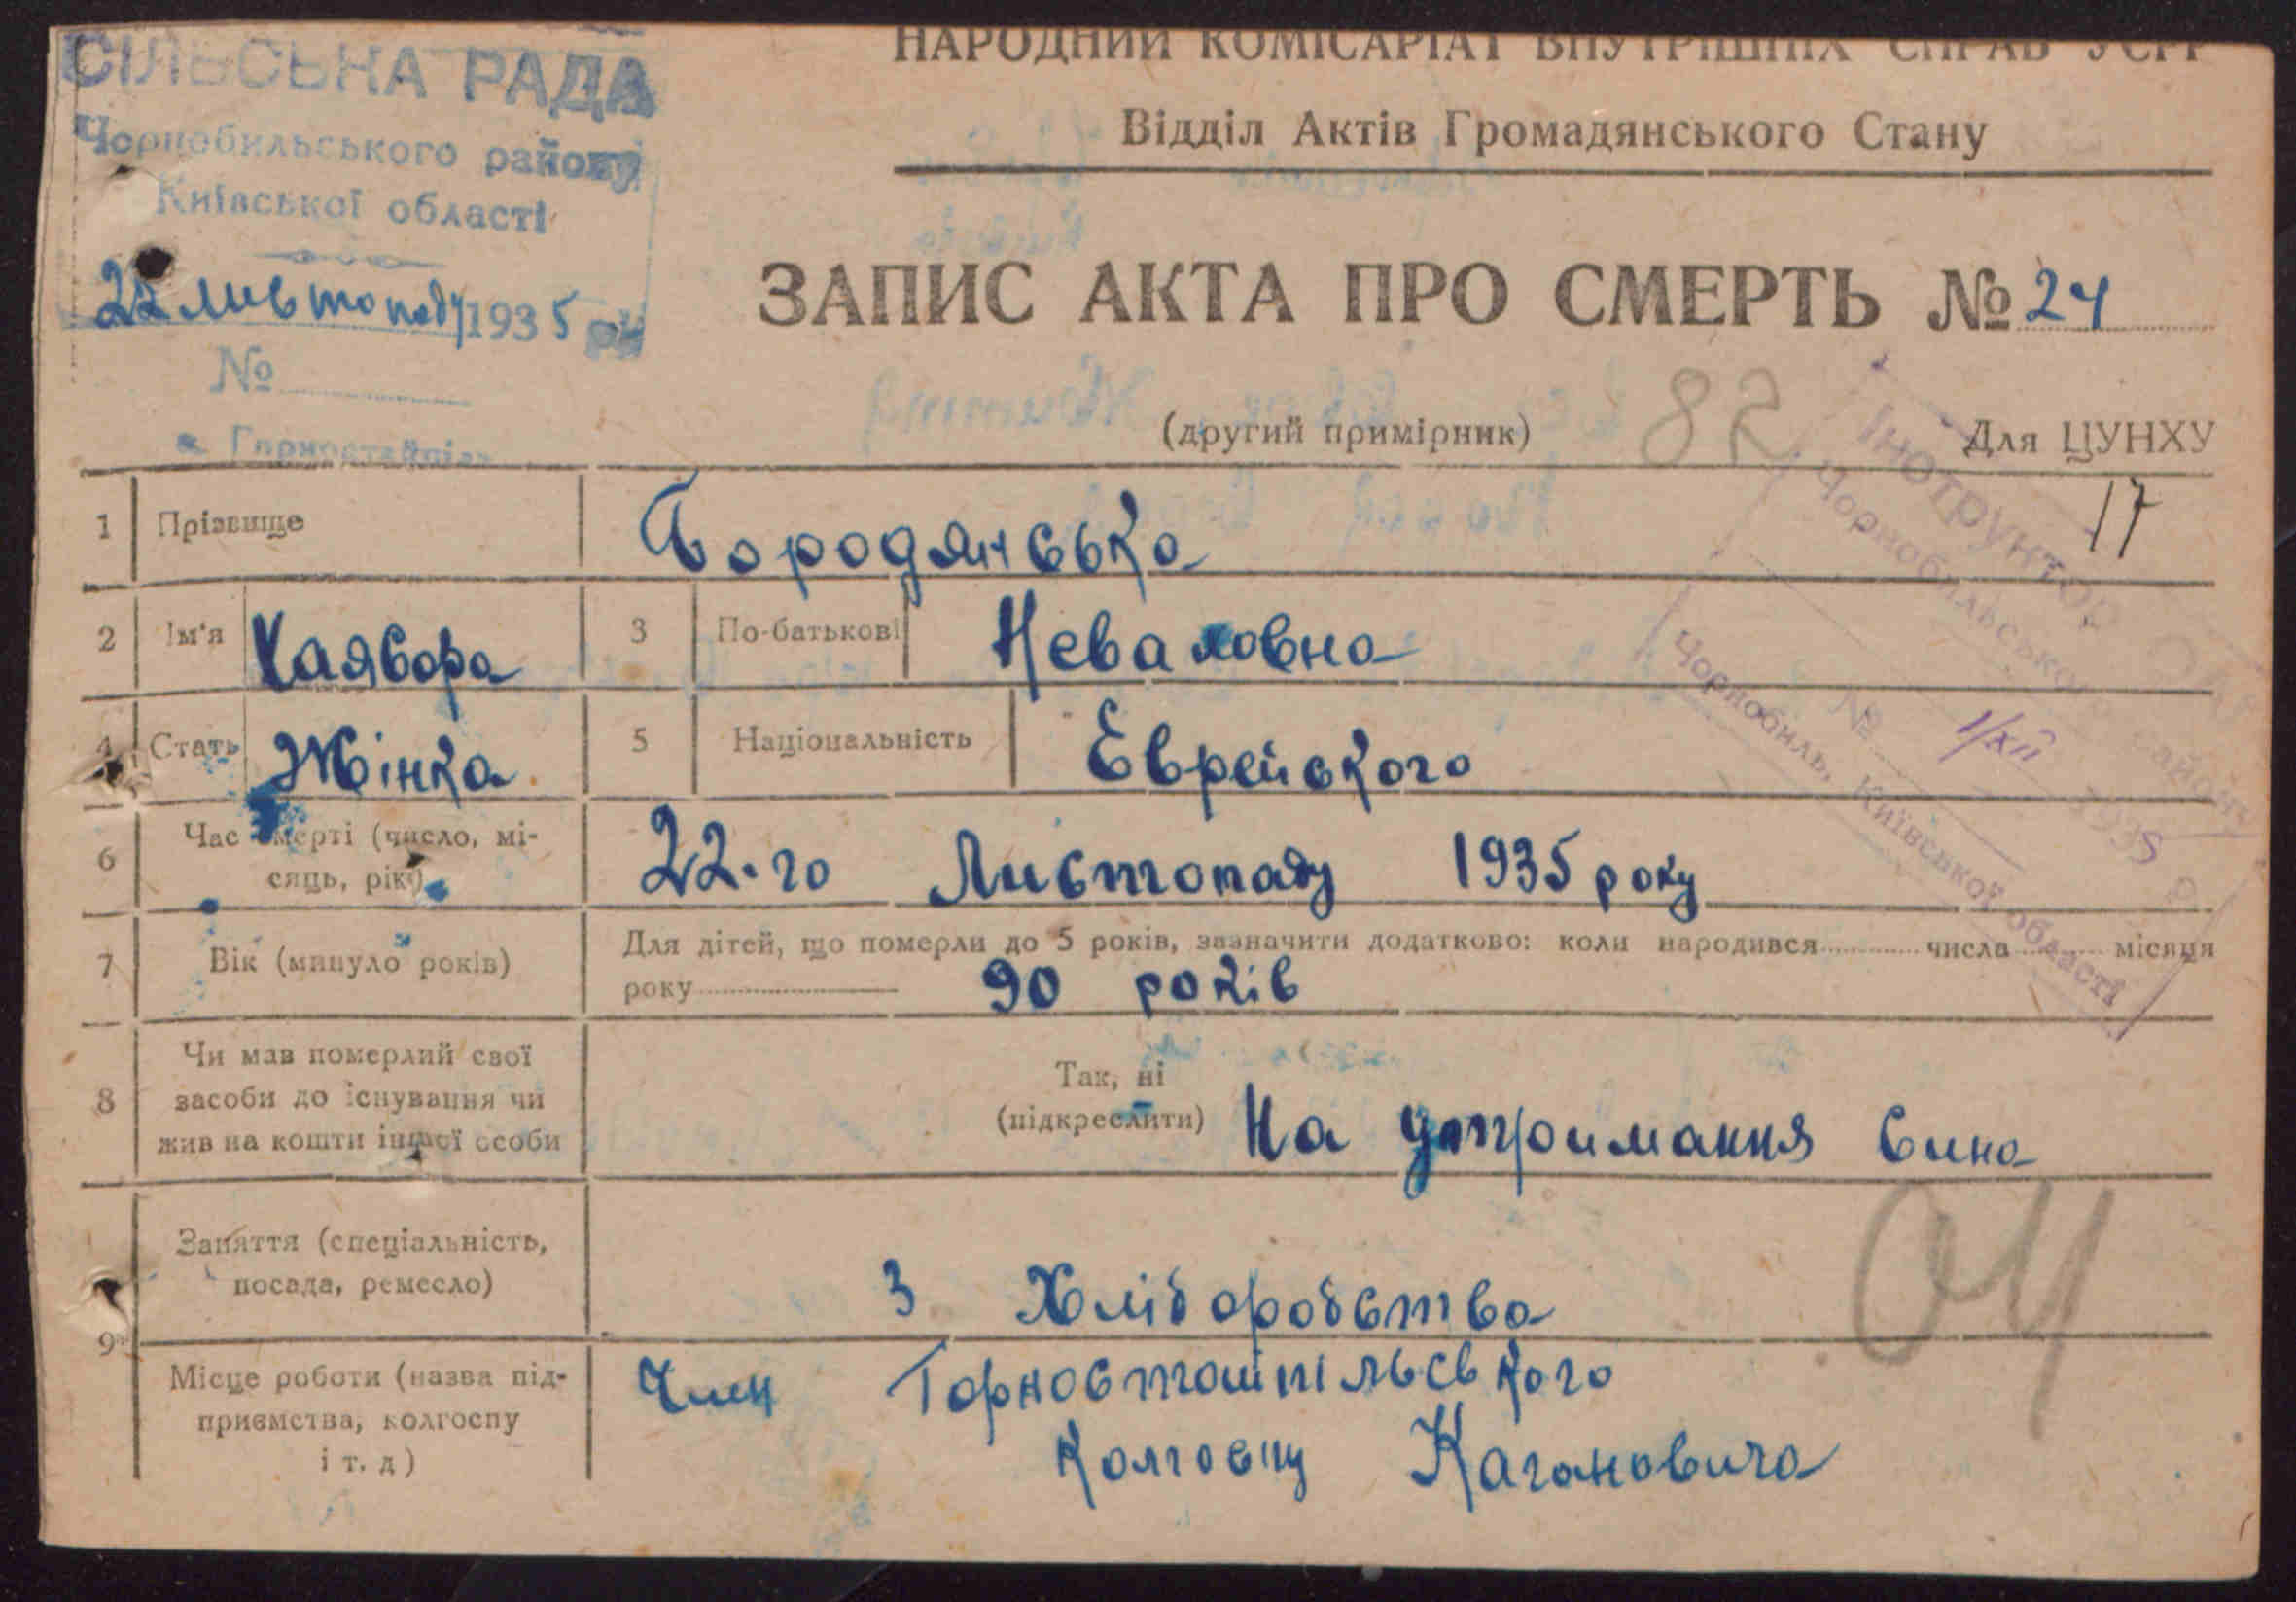 СІЛЬСЬКА РАДА
Чорнобильського району
Київської області
22 листопаду 1935 рік
№
НАРОДНИЙ КОМІСАРІАТ ВНУТРІШНІХ СПРАВ УСРР
Відділ Актів Громадянського Стану
ЗАПИС АКТА ПРО СМЕРТЬ № 24
(другий примірник)
82
Для ЦУНХУ
17
Інструктор
Чорнобильського району
№ 1/XII 1935 р.
Чорнобиль, Київської області
1 Прізвище Бородянська
2 Ім'я Хаявора 3 По-батькові
4 Стать Жінка 5 Національність Еврейского
6 Час смерті (число, мі-
сяць, рік) 22-го Листопаду 1935 року
7 Вік (минуло років) Для дітей, що померли до 5 років, зазначити додатково: коли народився числа місяця
року 90 років
8 Чи мав померлий свої
засоби до існування чи
жив на кошти іншої особи
Так, ні
(підкреслити) На утримання сина
9 Заняття (спеціальність,
посада, ремесло) З Хліборобства
04
Місце роботи (назва під-
приємства, колгоспу
і т. д) Член Горностайпільського
Колгоспу Кагановича